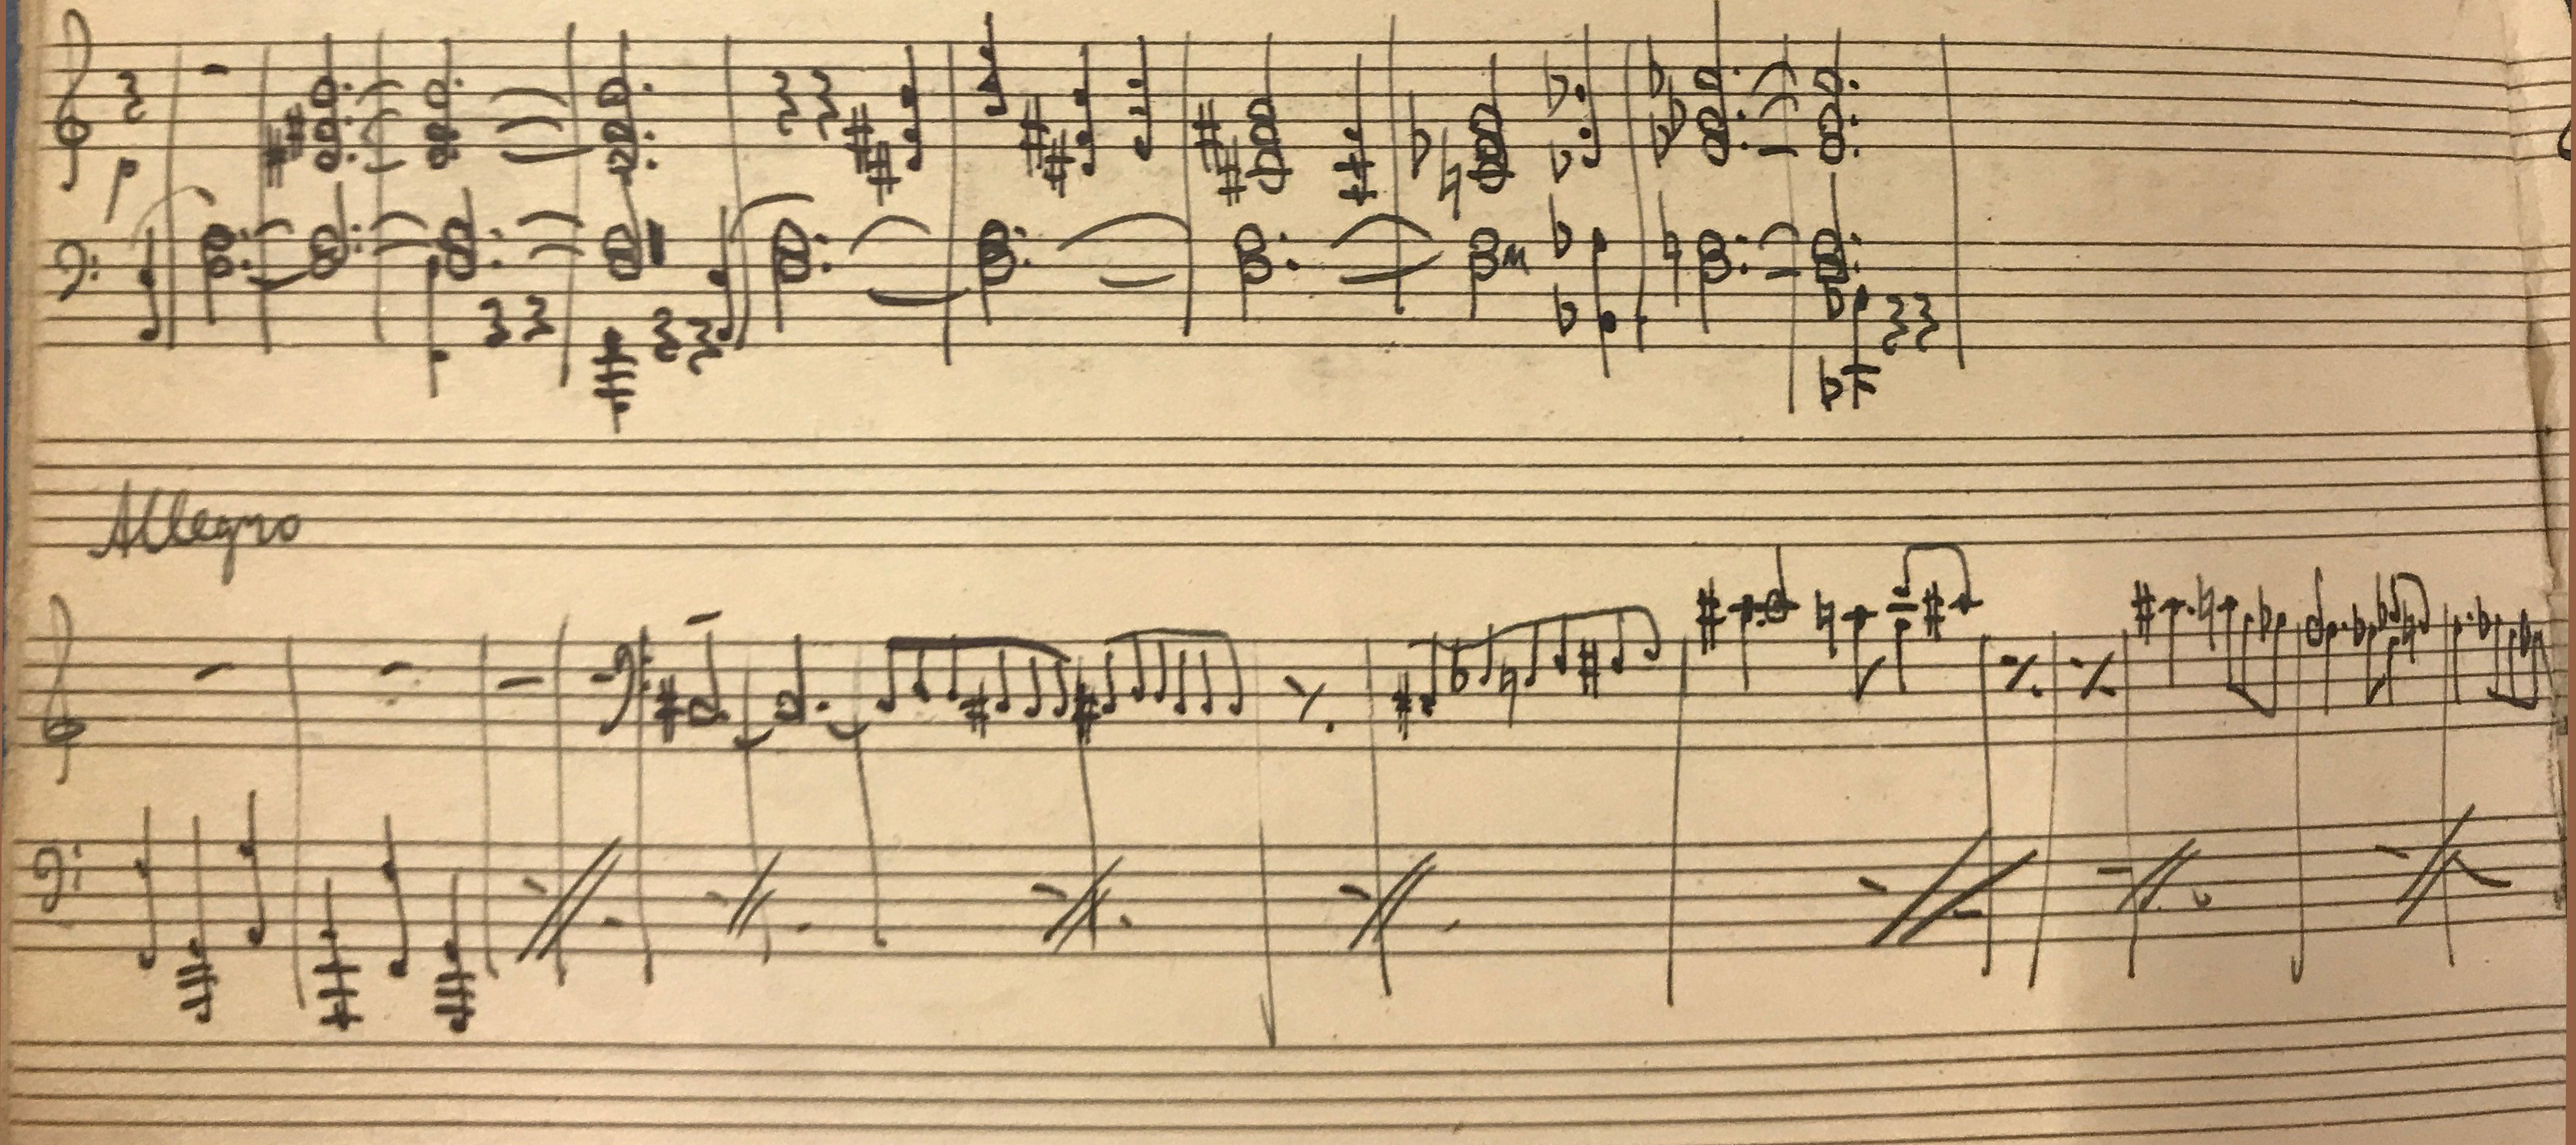 p
Allegro